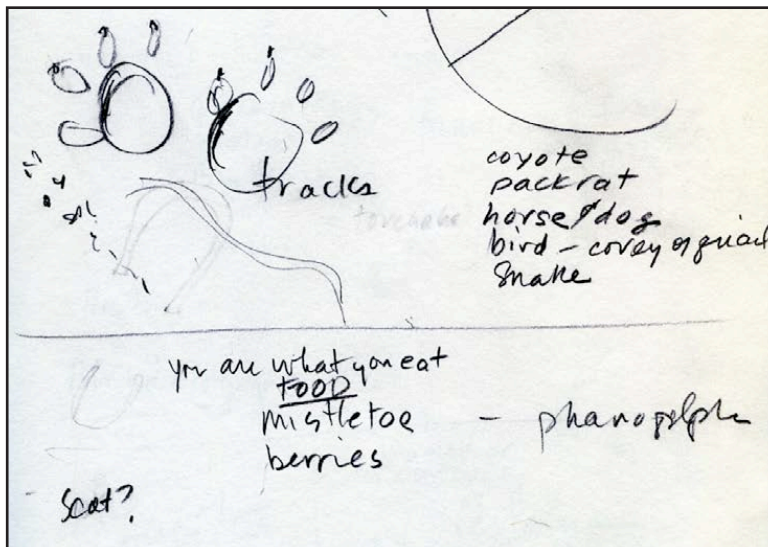 tracks
coyote
packrat
horse/dog
bird - covey of quail
snake
you are what you eat
FOOD
mistletoe -
berries
Scat?